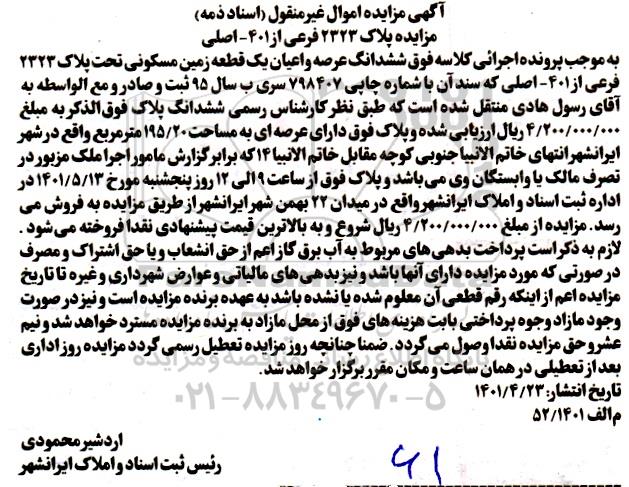 آگهی مزایده اموال غیرمنقول (اسناد ذمه)
مزایده پلاک ۲۳۲۳ فرعی از ۴۰۱- اصلی
به موجب پرونده اجرائی کلاسه فوق ششدانگ عرصه واعیان یک قطعه زمین مسکونی تحت پلاک ۲۳۲۳
فرعی از ۴۰۱- اصلی که سند آن با شماره چاپی ۷۹۸۴۰۷ سری ب سال ۹۵ ثبت و صادر و مع الواسطه به
آقای رسول هادی منتقل شده است که طبق نظر کارشناس رسمی ششدانگ پلاک فوق الذکر به مبلغ
۴/۲۰۰/۰۰۰/۰۰۰ ریال ارزیابی شده و پلاک فوق دارای عرصه ای به مساحت ۱۹۵/۲۰ مترمربع واقع در شهر
ایرانشهر انتهای خاتم الانبیا جنوبی کوچه مقابل خاتم الانبیا ۱۴ که برابر گزارش مامور اجرا ملک مزبور در
تصرف مالک یا وابستگان وی می باشد و پلاک فوق از ساعت ۹ الی ۱۲ روز پنجشنبه مورخ ۱۴۰۱/۵/۱۳ در
اداره ثبت اسناد و املاک ایرانشهر واقع در میدان ۲۲ بهمن شهر ایرانشهر از طریق مزایده به فروش می
رسد. مزایده از مبلغ ۴/۲۰۰/۰۰۰/۰۰۰ ریال شروع و به بالاترین قیمت پیشنهادی نقدا فروخته می شود .
لازم به ذکر است پرداخت بدهی های مربوط به آب برق گاز اعم از حق انشعاب و یا حق اشتراک و مصرف
در صورتی که مورد مزایده دارای آنها باشد و نیز بدهی های مالیاتی و عوارض شهرداری و غیره تا تاریخ
مزایده اعم از اینکه رقم قطعی آن معلوم شده یا نشده باشد به عهده برنده مزایده است و نیز در صورت
وجود مازاد وجوه پرداختی بابت هزینه های فوق از محل مازاد به برنده مزایده مسترد خواهد شد و نیم
عشر و حق مزایده نقدا وصول می گردد. ضمنا چنانچه روز مزایده تعطیل رسمی گردد مزایده روز اداری
بعد از تعطیلی در همان ساعت و مکان مقرر برگزار خواهد شد.
تاریخ انتشار: ۱۴۰۱/۴/۲۳
م الف ۵۲/۱۴۰۱
۰۲۱-۸۸۳۴۹۶۷۰-۵
اردشیر محمودی
رئیس ثبت اسناد و املاک ایرانشهر
۶۱